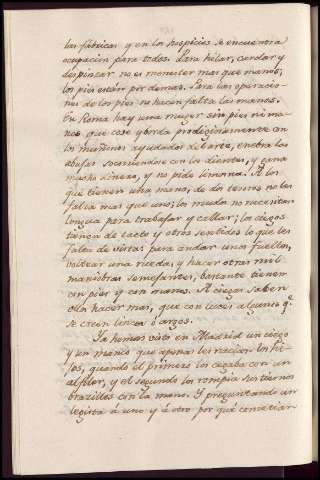 las fábricas y en los hospicios se encuentra
ocupacion para todos. Para hilar, cardar y
despinzar no es menester mas que manos,
los pies estan por demas. Para las operacio-
nes de los pies no hacen falta las manos.
En Roma hay una muger sin pies ni ma-
nos que cose y borda prodigiosamente con
los muñones ayudados del arte, enebra las
abujas socorriendose con los dientes, y gana
mucho dinero, y no pide limosna. A los
que tienen una mano, de dos tercios no les
falta mas que uno; los mudos no necesitan
lengua para trabajar y callar; los ciegos
tienen de tacto y otros sentidos lo que les
falta de vista: para andar unos fuelles,
voltear una rueda, y hacer otras mil
maniobras semejantes, bastante tienen
con pies y con manos. A ciegas saben
ellos hacer mas, que con luces algunos qᵉ
se creen linces ó argos.
Ya hemos visto en Madrid un ciego
y un manco que apenas les nacian los hi-
jos, quando el primero los cegaba con un
alfiler, y el segundo los rompia sus tiernos
brazillos con la mano. Y preguntando un
legista á uno y á otro por qué cometian